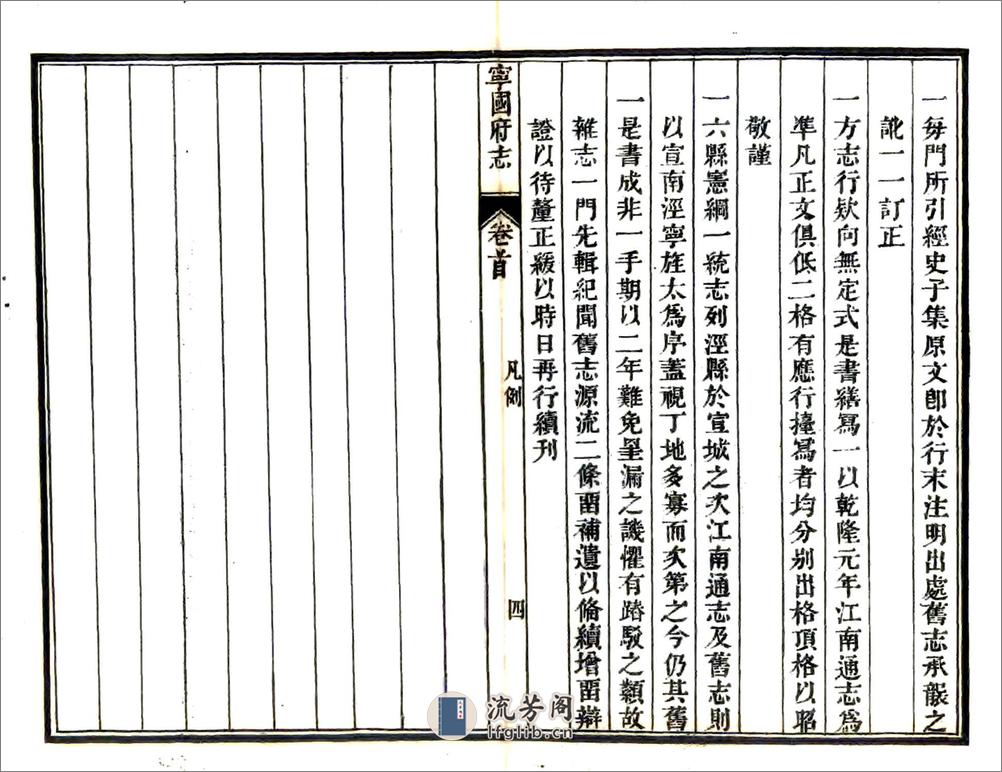 一每門所引經史子集原文卽於行末注明出處舊志承襲之
訛一一訂正
一方志行欵向無定式是書繕寫一以乾隆元年江南通志爲
凖凡正文俱低二格有應行擡寫者均分别出格頂格以昭
敬謹
一六縣憲綱一統志列涇縣於宣城之次江南通志及舊志則
以宣南涇寧旌太爲序蓋視丁地多寡而次第之今仍其舊
一是書成非一手期以二年難免罣漏之譏懼有踳駁之類故
雜志一門先輯紀聞舊志源流二條畱補遺以俻續增畱辯
證以待釐正緩以時日再行續刊
寧國府志
卷首
凡例
四
流芳阁
lfglib.cn